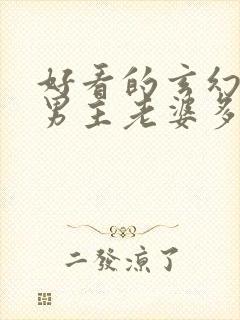 好看的玄幻
男主老婆多
二發涼了